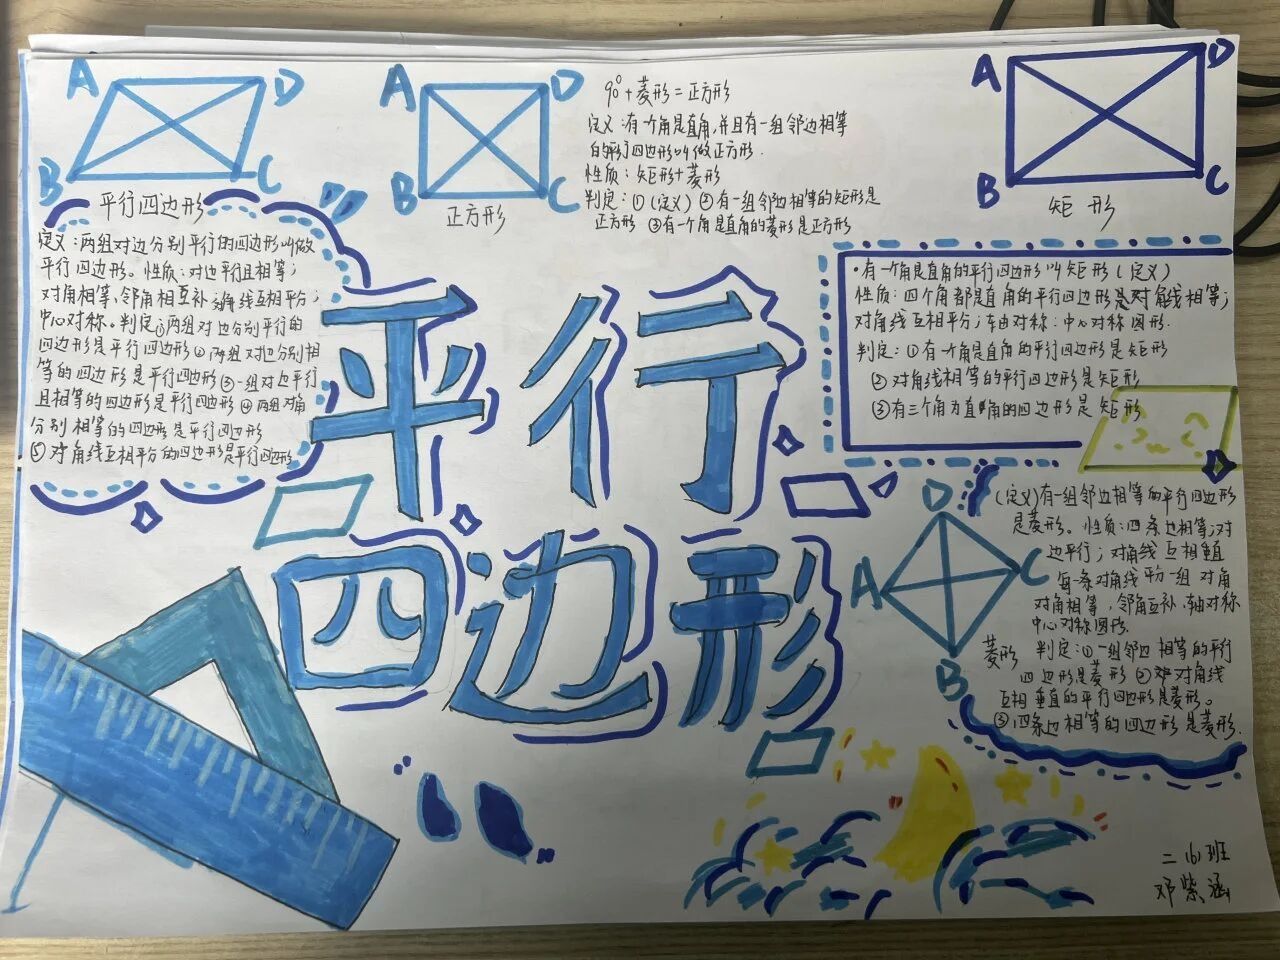 A D
B C
平行四边形
定义:两组对边分别平行的四边形叫做
平行四边形。性质:对边平行且相等;
对角相等、邻角相互补对角线互相平分;
中心对称。判定①两组对边分别平行的
四边形是平行四边形②两组对边分别相
等的四边形是平行四边形③一组对边平行
且相等的四边形是平行四边形④两组对角
分别相等的四边形是平行四边形
⑤对角线互相平分的四边形是平行四边形
A D
B C
正方形
90°+菱形=正方形
定义:有一个角是直角,并且有一组邻边相等
的平行四边形叫做正方形.
性质:矩形+菱形
判定:①(定义)②有一组邻边相等的矩形是
正方形 ③有一个角是直角的菱形是正方形
A D
B C
矩形
·有一个角是直角的平行四边形叫矩形(定义)
性质:四个角都是直角的平行四边形是对角线相等;
对角线互相平分;轴对称:中心对称图形.
判定:①有一个角是直角的平行四边形是矩形
②对角线相等的平行四边形是矩形
③有三个角为直角的四边形是矩形
平行
四边形
D
A C
B
菱形
(定义)有一组邻边相等的平行四边形
是菱形。性质:四条边相等;对
边平行;对角线互相垂直
每一条对角线平分一组对角
对角相等,邻角互补、轴对称
中心对称图形.
判定:①一组邻边相等的平行
四边形是菱形②对角线
互相垂直的平行四边形是菱形。
③四条边相等的四边形是菱形.
二(6)班
邓紫涵